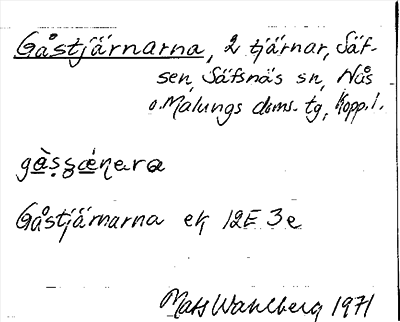 Gåstjärnarna, 2 tjärnar, Säf-
sen, Säfsnäs sn, Nås
o. Malungs doms. tg, Kopp. l.
gàșșǽṇara
Gåstjärnarna ek 12E 3e
Mats Wahlberg 1971